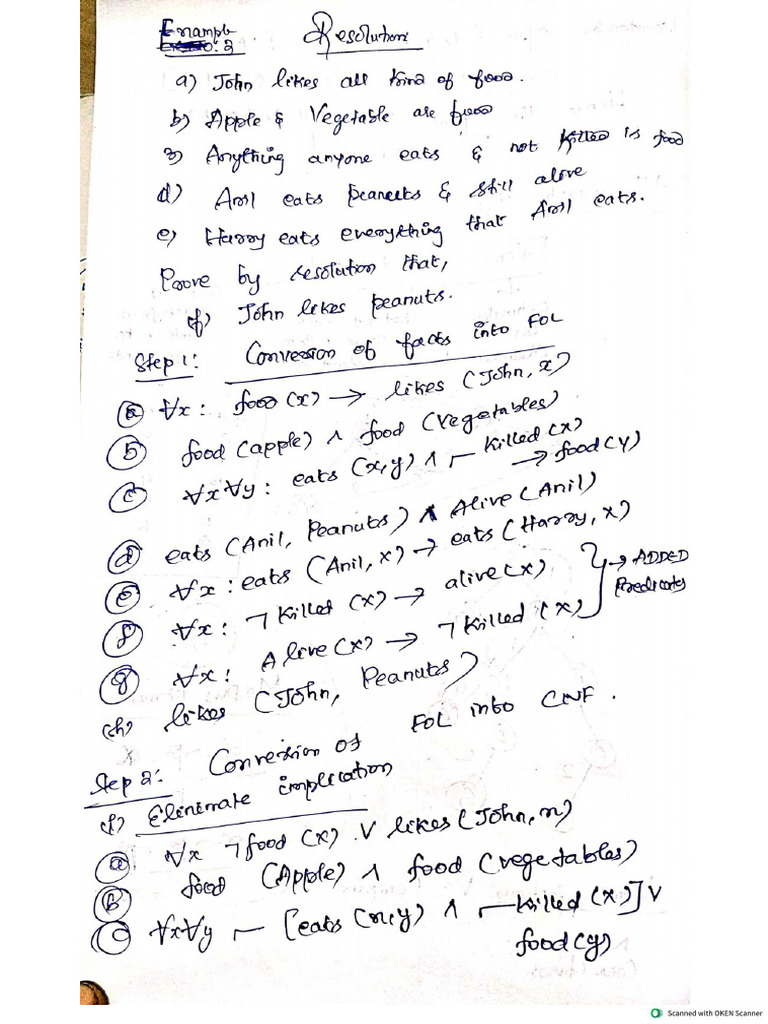 Example
: 2 Resolution
a) John likes all kind of food.
b) Apple & Vegetable are food
3) Anything anyone eats & not killed is food
d) Anil eats peanuts & still alive
e) Harry eats everything that Anil eats.
Prove by resolution that,
f) John likes peanuts.
Step 1: Conversion of facts into FOL
(a) ∀x: food(x) → likes (John, x)
(b) food (apple) ∧ food (vegetables)
(c) ∀x∀y: eats (x,y) ∧ ¬ killed (x)
→ food(y)
(d) eats (Anil, Peanuts) ∧ Alive (Anil)
(e) ∀x: eats (Anil, x) → eats (Harry, x)
(f) ∀x: ¬ killed (x) → alive (x) } → ADDED
Predicates
(g) ∀x: Alive (x) → ¬ killed (x)
(h) likes (John, Peanuts)
Step 2: Conversion of FOL into CNF.
(f) Eliminate implication
(a) ∀x ¬food (x) ∨ likes (John, n)
(b) food (Apple) ∧ food (vegetables)
(c) ∀x∀y ¬ [eats (n,y) ∧ ¬ killed (x)] ∨
food(y)
Scanned with OKEN Scanner